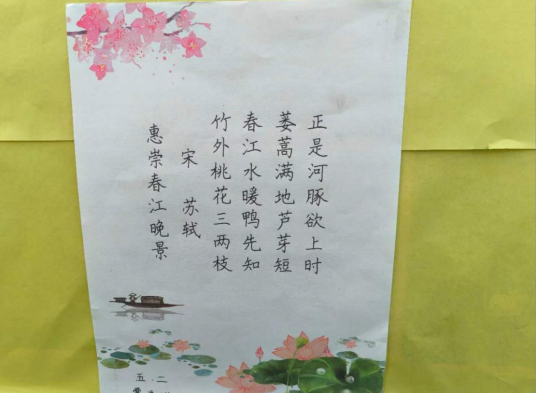 惠崇春江晚景
宋 苏轼
竹外桃花三两枝
春江水暖鸭先知
蒌蒿满地芦芽短
正是河豚欲上时
五.二